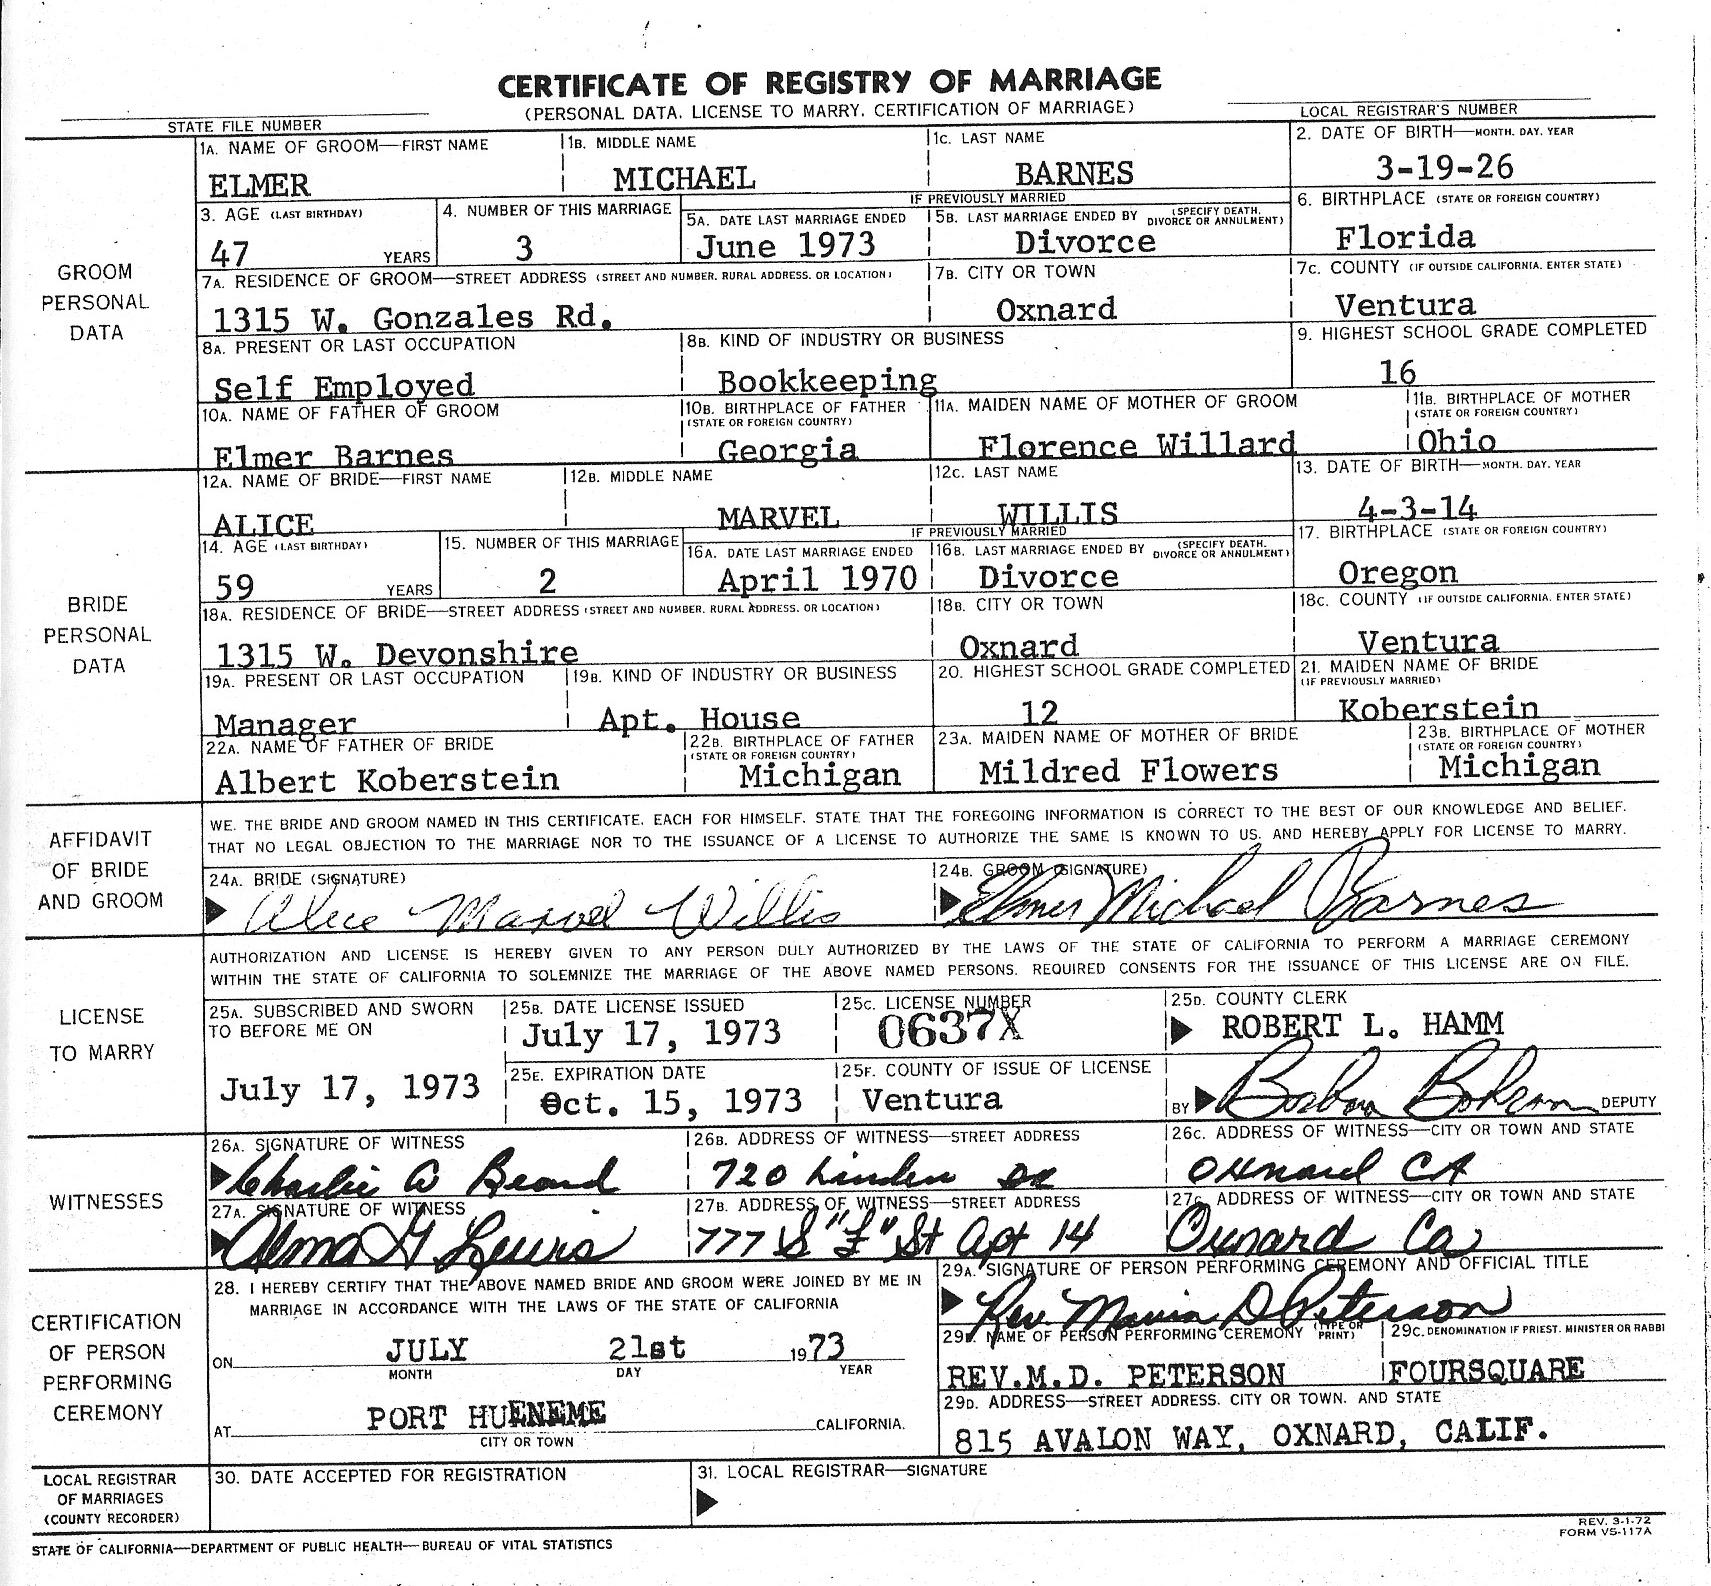 CERTIFICATE OF REGISTRY OF MARRIAGE
(PERSONAL DATA, LICENSE TO MARRY, CERTIFICATION OF MARRIAGE)
STATE FILE NUMBER
LOCAL REGISTRAR'S NUMBER
GROOM PERSONAL DATA
1A. NAME OF GROOM—FIRST NAME
ELMER
1B. MIDDLE NAME
MICHAEL
1C. LAST NAME
BARNES
2. DATE OF BIRTH—MONTH, DAY, YEAR
3-19-26
3. AGE (LAST BIRTHDAY)
47 YEARS
4. NUMBER OF THIS MARRIAGE
3
IF PREVIOUSLY MARRIED
5A. DATE LAST MARRIAGE ENDED
June 1973
5B. LAST MARRIAGE ENDED BY (SPECIFY DEATH, DIVORCE OR ANNULMENT)
Divorce
6. BIRTHPLACE (STATE OR FOREIGN COUNTRY)
Florida
7A. RESIDENCE OF GROOM—STREET ADDRESS (STREET AND NUMBER, RURAL ADDRESS, OR LOCATION)
1315 W. Gonzales Rd.
7B. CITY OR TOWN
Oxnard
7C. COUNTY (IF OUTSIDE CALIFORNIA, ENTER STATE)
Ventura
8A. PRESENT OR LAST OCCUPATION
Self Employed
8B. KIND OF INDUSTRY OR BUSINESS
Bookkeeping
9. HIGHEST SCHOOL GRADE COMPLETED
16
10A. NAME OF FATHER OF GROOM
Elmer Barnes
10B. BIRTHPLACE OF FATHER (STATE OR FOREIGN COUNTRY)
Georgia
11A. MAIDEN NAME OF MOTHER OF GROOM
Florence Willard
11B. BIRTHPLACE OF MOTHER (STATE OR FOREIGN COUNTRY)
Ohio
BRIDE PERSONAL DATA
12A. NAME OF BRIDE—FIRST NAME
ALICE
12B. MIDDLE NAME
MARVEL
12C. LAST NAME
WILLIS
13. DATE OF BIRTH—MONTH, DAY, YEAR
4-3-14
14. AGE (LAST BIRTHDAY)
59 YEARS
15. NUMBER OF THIS MARRIAGE
2
IF PREVIOUSLY MARRIED
16A. DATE LAST MARRIAGE ENDED
April 1970
16B. LAST MARRIAGE ENDED BY (SPECIFY DEATH, DIVORCE OR ANNULMENT)
Divorce
17. BIRTHPLACE (STATE OR FOREIGN COUNTRY)
Oregon
18A. RESIDENCE OF BRIDE—STREET ADDRESS (STREET AND NUMBER, RURAL ADDRESS, OR LOCATION)
1315 W. Devonshire
18B. CITY OR TOWN
Oxnard
18C. COUNTY (IF OUTSIDE CALIFORNIA, ENTER STATE)
Ventura
19A. PRESENT OR LAST OCCUPATION
Manager
19B. KIND OF INDUSTRY OR BUSINESS
Apt. House
20. HIGHEST SCHOOL GRADE COMPLETED
12
21. MAIDEN NAME OF BRIDE (IF PREVIOUSLY MARRIED)
Koberstein
22A. NAME OF FATHER OF BRIDE
Albert Koberstein
22B. BIRTHPLACE OF FATHER (STATE OR FOREIGN COUNTRY)
Michigan
23A. MAIDEN NAME OF MOTHER OF BRIDE
Mildred Flowers
23B. BIRTHPLACE OF MOTHER (STATE OR FOREIGN COUNTRY)
Michigan
AFFIDAVIT OF BRIDE AND GROOM
WE, THE BRIDE AND GROOM NAMED IN THIS CERTIFICATE, EACH FOR HIMSELF, STATE THAT THE FOREGOING INFORMATION IS CORRECT TO THE BEST OF OUR KNOWLEDGE AND BELIEF,
THAT NO LEGAL OBJECTION TO THE MARRIAGE NOR TO THE ISSUANCE OF A LICENSE TO AUTHORIZE THE SAME IS KNOWN TO US, AND HEREBY APPLY FOR LICENSE TO MARRY.
24A. BRIDE (SIGNATURE)
Alice Marvel Willis
24B. GROOM (SIGNATURE)
Elmer Michael Barnes
LICENSE TO MARRY
AUTHORIZATION AND LICENSE IS HEREBY GIVEN TO ANY PERSON DULY AUTHORIZED BY THE LAWS OF THE STATE OF CALIFORNIA TO PERFORM A MARRIAGE CEREMONY
WITHIN THE STATE OF CALIFORNIA TO SOLEMNIZE THE MARRIAGE OF THE ABOVE NAMED PERSONS. REQUIRED CONSENTS FOR THE ISSUANCE OF THIS LICENSE ARE ON FILE.
25A. SUBSCRIBED AND SWORN TO BEFORE ME ON
July 17, 1973
25B. DATE LICENSE ISSUED
July 17, 1973
25C. LICENSE NUMBER
0637X
25D. COUNTY CLERK
ROBERT L. HAMM
25E. EXPIRATION DATE
Oct. 15, 1973
25F. COUNTY OF ISSUE OF LICENSE
Ventura
BY Barbara DEPUTY
WITNESSES
26A. SIGNATURE OF WITNESS
Charlie W Beard
26B. ADDRESS OF WITNESS—STREET ADDRESS
720 Linden Dr
26C. ADDRESS OF WITNESS—CITY OR TOWN AND STATE
Oxnard CA
27A. SIGNATURE OF WITNESS
Alma G Lewis
27B. ADDRESS OF WITNESS—STREET ADDRESS
777 S St Apt 14
27C. ADDRESS OF WITNESS—CITY OR TOWN AND STATE
Oxnard Ca
CERTIFICATION OF PERSON PERFORMING CEREMONY
28. I HEREBY CERTIFY THAT THE ABOVE NAMED BRIDE AND GROOM WERE JOINED BY ME IN
MARRIAGE IN ACCORDANCE WITH THE LAWS OF THE STATE OF CALIFORNIA
ON JULY 21st 1973
MONTH DAY YEAR
AT PORT HUENEME CALIFORNIA.
CITY OR TOWN
29A. SIGNATURE OF PERSON PERFORMING CEREMONY AND OFFICIAL TITLE
Rev. D Peterson
29B. NAME OF PERSON PERFORMING CEREMONY (TYPE OR PRINT)
REV.M.D. PETERSON
29C. DENOMINATION IF PRIEST, MINISTER OR RABBI
FOURSQUARE
29D. ADDRESS—STREET ADDRESS, CITY OR TOWN, AND STATE
815 AVALON WAY, OXNARD, CALIF.
LOCAL REGISTRAR OF MARRIAGES (COUNTY RECORDER)
30. DATE ACCEPTED FOR REGISTRATION
31. LOCAL REGISTRAR—SIGNATURE
STATE OF CALIFORNIA—DEPARTMENT OF PUBLIC HEALTH—BUREAU OF VITAL STATISTICS
REV. 3-1-72
FORM VS-117A